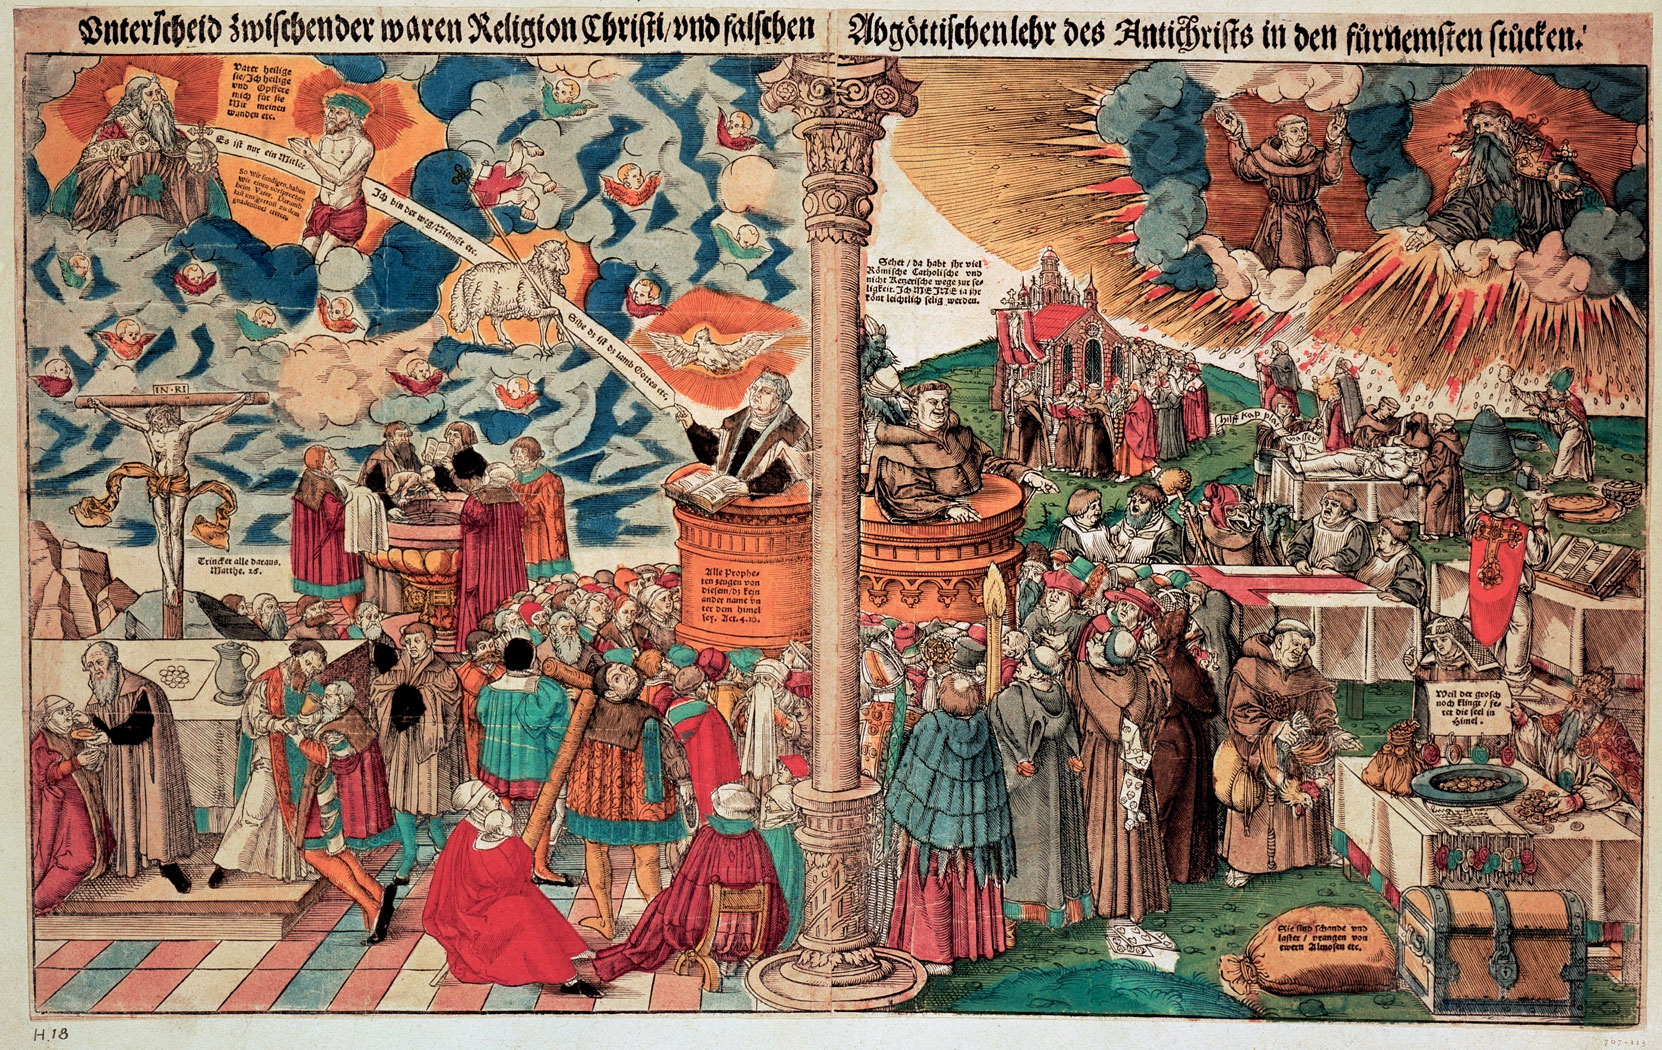 Vnterscheid zwischen der waren Religion Christi / vnd falschen Abgöttischen lehr des Antichrists in den fürnemsten stücken.
Vater heilige
sie / Ich heilige
vnd Opffere
mich für sie
Mit meinen
wunden etc.
Es ist nur ein Mitler
So wir sundigen, haben
wir einen vorsprecher
beim Vater, Darumb
last vns getrost zu dem
gnadenstuel treten
Ich bin der weg / Niemāt etc.
Sihe dz ist dz lamb Gottes etc.
IN·RI
Trincket alle daraus.
Matthe. 26.
Alle Prophe-
ten zeugen von
diesem / dz kein
ander name vn
ter dem himel
sey. Act. 4. 10.
Sehet / da habt ihr viel
Römische Catholische vnd
nicht Ketzerische wege zur se-
ligkeit. Ich MEINE ia ihr
könt leichtlich selig werden.
hilff kap
wasser
Weil der grosch
noch klingt / fe-
ret die seel in
Himel.
Sie sind schande vnd
laster / prangen von
ewern Almosen etc.
H.18